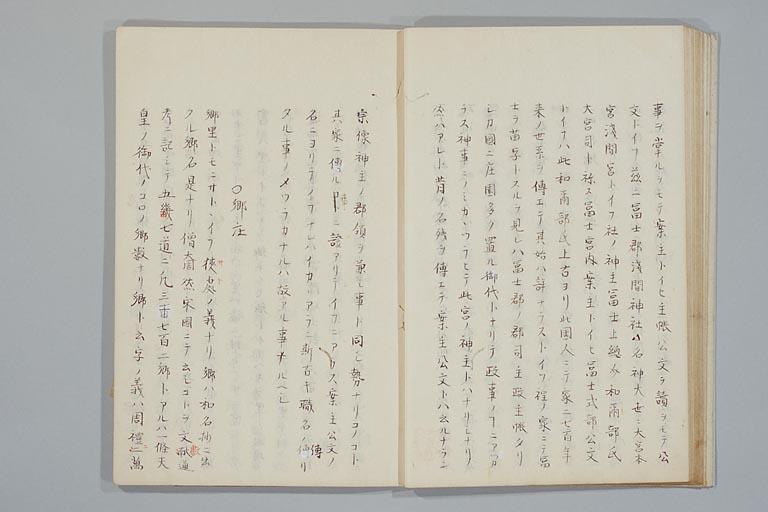 事ヲ掌ルヲモテ案主トイヒ主帳公文ヲ讀ヲモテ公
文トイフ茲ニ冨士郡浅間神社ハ名神大世ニ大宮本
宮浅間宮トイフ社ノ神主冨士上総介和邇部氏
大宮司ト称ス冨士宮内案主トイヒ冨士式部公文
トイフハ此和邇部氏上古ヨリ此国人ニテ家ニ七百年
来ノ世系ヲ傳エテ其始ハ詳ナラストイフ程ノ家ニテ冨
士ヲ苗字トスルヲ見レハ冨士郡ノ郡司主政主帳タリ
シカ國ニ庄園多ク置ル御代トナリテ政事ノコニアツカ
ラス神事ニノミカヽツラヒテ此宮ノ神主トハナリシナリノ
然ハアレト昔ノ名残ヲ傳エテ案主公文トハ云ルナラン
宗像神主ノ郡領ヲ兼シ事ト同シ勢ナリコノコト
其家ニ傳ル事ニ證アリテイフニアラス案主公文ノ
名ニヨリテイフナレハイカヽアラン斯古キ職名ノ傳リ
タル事ノメツラカナルハ故アル事ナルヘシ
〇郷庄
郷里トモニサトヽイフ狭処ノ義ナリ郷ハ和名抄ニ出
タル郷名是ナリ僧奝然宋國ニテ云シコトヲ文獻通
考ニ記シテ五畿七道ニ凡三千七百二郷トアルハ一條天
皇ノ御代ノコロノ郷数ナリ郷ト云字ノ義ハ周禮ニ萬